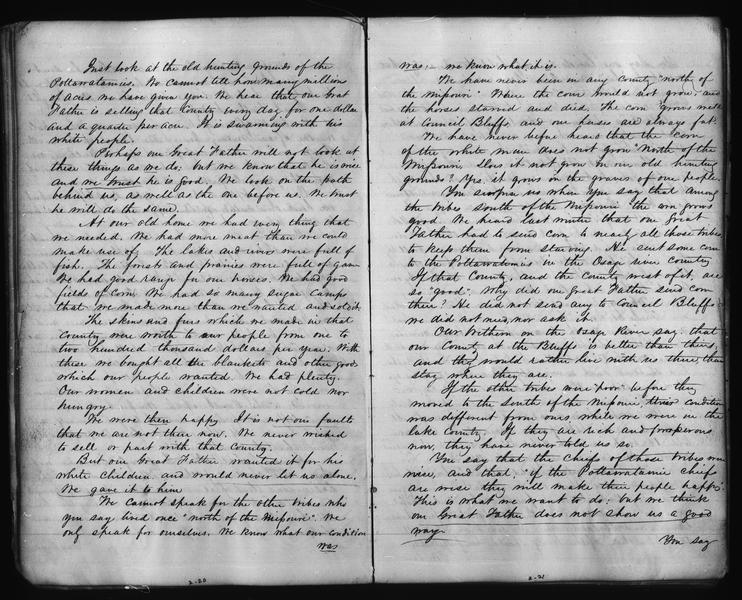 Just look at the old hunting grounds of the
Pottawatamies. We cannot tell how many millions
of acres we have given you. We hear that our Great
Father is selling that County every day, for one dollar
and a quarter per acre. It is swarming with his
white people.
Perhaps our Great Father will not look at
these things as we do, but we know that he is wise
and we trust he is good. We look on the path
behind us, as well as the one before us. We trust
he will do the same.
At our old home we had every thing that
we needed. We had more meat than we could
make use of. The lakes and rivers were full of
fish. The forests and prairies were full of game
We had good range for our horses. We had good
fields of Corn. We had so many Sugar Camps
that we made more than we wanted and sold it.
The skins and furs which we made in that
County were worth to our people from one to
two hundred thousand dollars per year. With
these we bought all the blankets and other goods
which our people wanted. We had plenty.
Our women and children were not cold nor
hungry.
We were then happy. It is not our fault
that we are not there now. We never wished
to sell or part with that County.
But our Great Father wanted it for his
white children and would never let us alone.
We gave it to him
We cannot speak for the other tribes who
you say lived once "north of the Missouri". We
only speak for ourselves. We know what our condition
was
2-20
was — we know what it is.
We have never been in any County "north of
the Missouri" Where the corn would not grow, and
the horses starved and died. The corn grows well
at Council Bluffs and our horses are always fat.
We have never before heard that the corn
of the white man does not grow "North of the
Missouri. Does it not grow in our old hunting
grounds? Yes, it grows on the graves of our people.
You surprise us when you say that among
the tribes South of the Missouri the corn grows
good. We heard last winter that one Great
Father had to send corn to nearly all those tribes
to keep them from starving. He sent some corn
to the Pottawatamies in the Osage river County
If that County, and the County west of it, are
so "good". Why did our Great Father send corn
there? He did not send any to Council Bluffs
we did not need, nor ask it.
Our brethren on the Osage River say, that
our County at the Bluffs is better than theirs,
and they would rather live with us there, than
stay where they are.
If the other tribes were "poor" before they
moved to the South of the Missouri, their condition
was different from ours, while we were in the
lake County. If they are rich and prosperous
now, they have never told us so.
You say that the Chiefs of those tribes were
wise, and that, "if the Pottawatamie chiefs
are wise they will make their people happy."
This is what we want to do: but we think
our Great Father does not show us a good
way.
You say
2-21